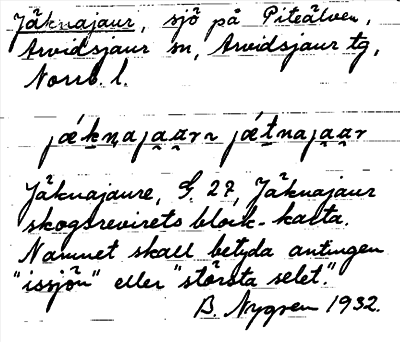 Jäknajaur, sjö på Piteälven,
Arvidsjaur sn, Arvidsjaur tg,
Norrb. l.
jǽk̠n̥aja̯a̯rn jǽt̠naja̯a̯r
Jäknajaure, G. 27, Jäknajaur
skogsrevirets block-karta.
Namnet skall betyda antingen
"issjön" eller "största selet".
B. Nygren 1932.